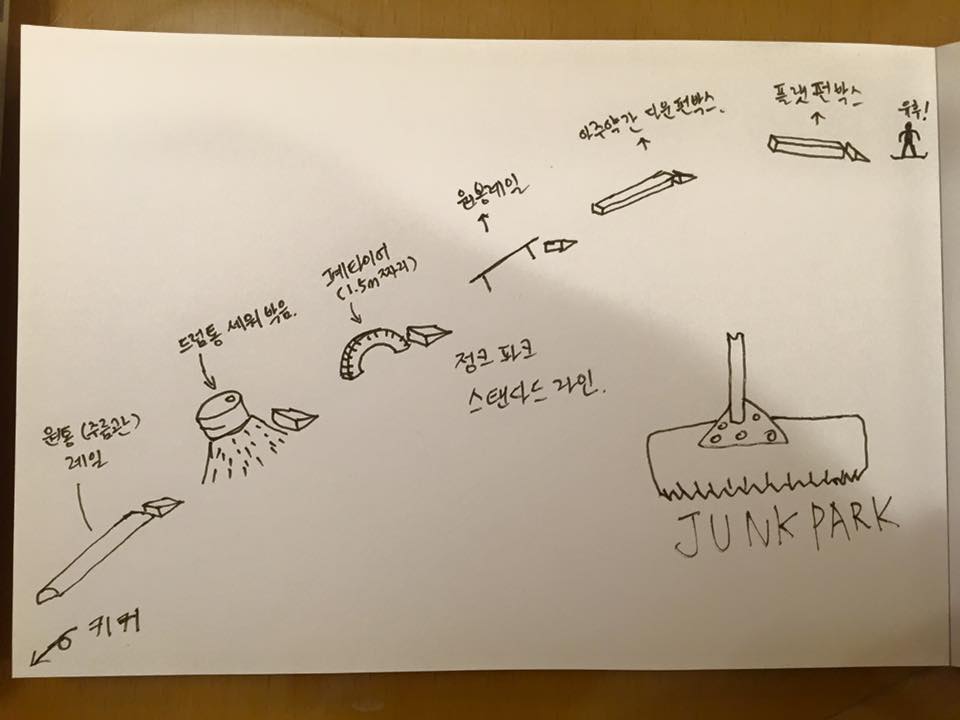 플랫 펀박스
유후!
아주약간 다운펀박스.
원봉레일
폐타이어
(1.5m 짜리)
드럼통 세워 박음.
정크 파크
스탠다드 라인.
원통(주름관)
레일
키커
JUNK PARK